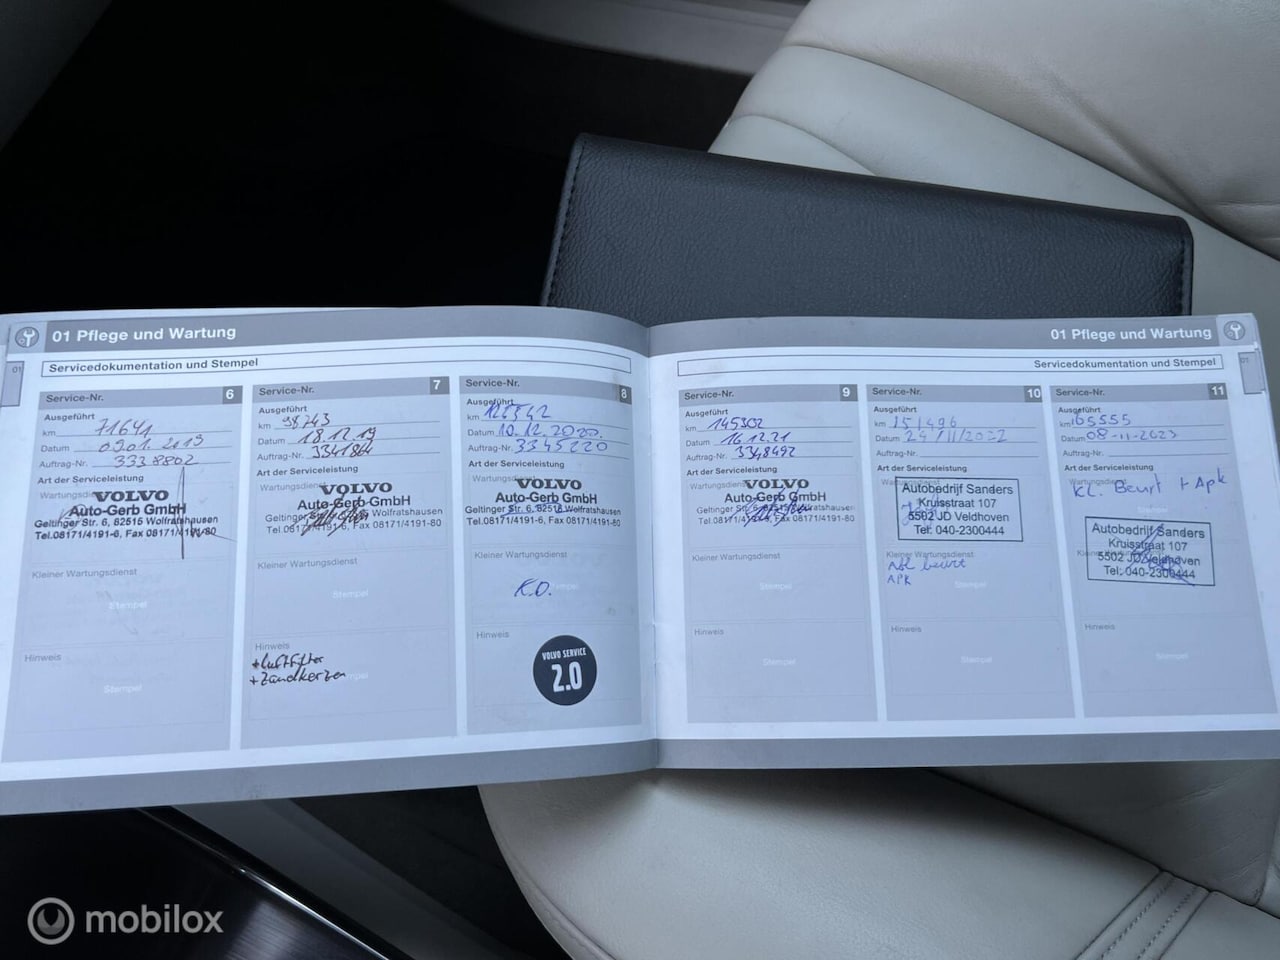 01 Pflege und Wartung
01
Servicedokumentation und Stempel
Service-Nr. 6
Ausgeführt
km 71641
Datum 09.01.2019
Auftrag-Nr. 3338802
Art der Serviceleistung
Wartungsdienst
VOLVO
Auto-Gerb GmbH
Geltinger Str. 6, 82515 Wolfratshausen
Tel.08171/4191-6, Fax 08171/4191-80
Kleiner Wartungsdienst
Stempel
Hinweis
Stempel
Service-Nr. 7
Ausgeführt
km 98743
Datum 18.12.19
Auftrag-Nr. 3341844
Art der Serviceleistung
VOLVO
Auto-Gerb GmbH
Tel.08171/4191-6, Fax 08171/4191-80
Kleiner Wartungsdienst
Stempel
Hinweis
+Luftfilter
+Zündkerzen
Service-Nr. 8
Ausgeführt
km
Datum 10.12.2020
Auftrag-Nr. 3345220
Art der Serviceleistung
VOLVO
Auto-Gerb GmbH
Geltinger Str. 6, 82515 Wolfratshausen
Tel.08171/4191-6, Fax 08171/4191-80
Kleiner Wartungsdienst
K.D.
Hinweis
VOLVO SERVICE
2.0
01 Pflege und Wartung
01
Servicedokumentation und Stempel
Service-Nr. 9
Ausgeführt
km 145302
Datum 16.12.21
Auftrag-Nr. 3348492
Art der Serviceleistung
VOLVO
Auto-Gerb GmbH
Kleiner Wartungsdienst
Stempel
Hinweis
Stempel
Service-Nr. 10
Ausgeführt
km 151496
Datum 24/11/2022
Auftrag-Nr.
Art der Serviceleistung
Autobedrijf Sanders
Kruisstraat 107
5502 JD Veldhoven
Tel: 040-2300444
beurt
APK
Hinweis
Stempel
Service-Nr. 11
Ausgeführt
km 165555
Datum 08-11-2023
Auftrag-Nr.
Art der Serviceleistung
KL. Beurt + Apk
Autobedrijf Sanders
Kruisstraat 107
5502 JD Veldhoven
Tel: 040-2300444
Hinweis
Stempel
mobilox